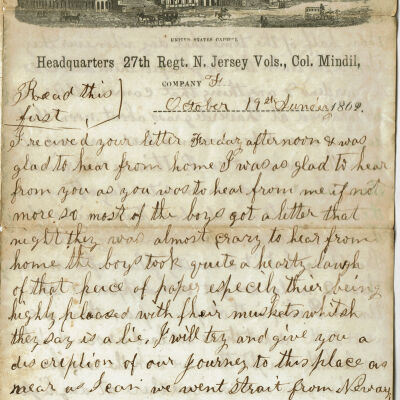 UNITED STATES CAPITOL
Headquarters 27th Regt. N. Jersey Vols., Col. Mindil,
COMPANY F
Read this
first
October 19th Sunday 1862.
I recived your letter Friday afternoon & was
glad to hear from home I was as glad to hear
from you as you was to hear from me if not
more so most of the boys got a letter that
night they was almost crazy to hear from
home the boys took quite a hearty laugh
of that peace of paper especily thier being
highly pleased with their muskets whitsh
they say is a lie, I will try and give you a
discription of our journey to this place as
near as I can we went strait from Neway